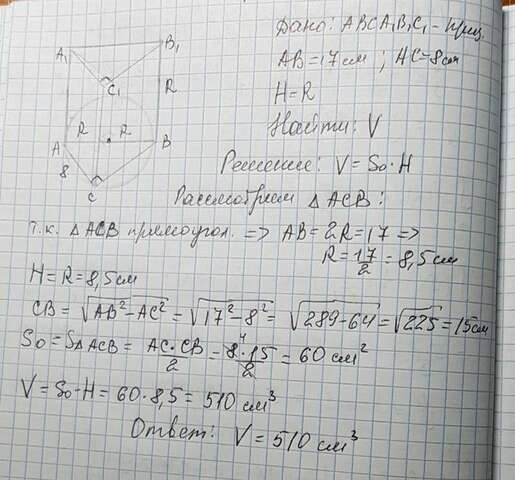 Дано: ABCA₁B₁C₁ - приз.
AB=17см ; AC=8см
H=R
Найти: V
Решение: V=So·H
Рассмотрим △ACB:
т.к. △ACB прямоугол. => AB=2R=17 =>
R=17/2=8,5см
H=R=8,5см
CB=√AB²-AC²=√17²-8²=√289-64=√225=15см
So=S△ACB=AC·CB/2=8·15/2=60 см²
V=So·H=60·8,5=510 см³
Ответ: V=510 см³
A₁
B₁
C₁
R
R
R
A
B
8
C
4